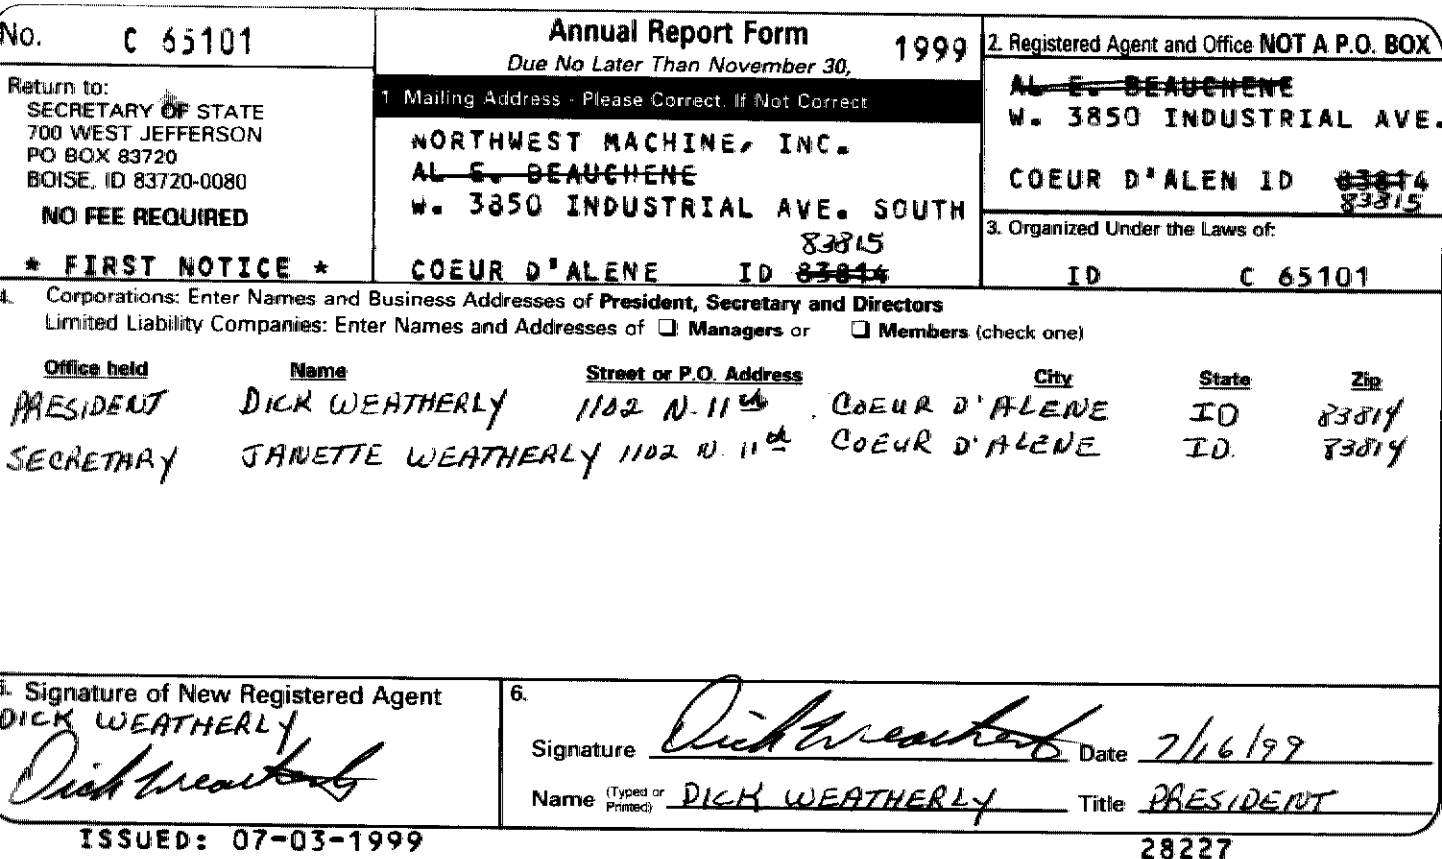 No. C 65101
Return to:
SECRETARY OF STATE
700 WEST JEFFERSON
PO BOX 83720
BOISE, ID 83720-0080
NO FEE REQUIRED
* FIRST NOTICE *
Annual Report Form 1999
Due No Later Than November 30,
1 Mailing Address - Please Correct, If Not Correct
NORTHWEST MACHINE, INC.
AL E. BEAUCHENE
W. 3850 INDUSTRIAL AVE. SOUTH
83815
COEUR D'ALENE ID 83814
2. Registered Agent and Office NOT A P.O. BOX
AL E. BEAUCHENE
W. 3850 INDUSTRIAL AVE.
COEUR D'ALEN ID 83814
83815
3. Organized Under the Laws of:
ID C 65101
4. Corporations: Enter Names and Business Addresses of President, Secretary and Directors
Limited Liability Companies: Enter Names and Addresses of ☐ Managers or ☐ Members (check one)
Office held Name Street or P.O. Address City State Zip
PRESIDENT DICK WEATHERLY 1102 N. 11th COEUR D'ALENE ID 83814
SECRETARY JANETTE WEATHERLY 1102 N. 11th COEUR D'ALENE ID. 83814
5. Signature of New Registered Agent
DICK WEATHERLY
Dick Weatherly
6.
Signature Dick Weatherly Date 7/16/99
Name (Typed or Printed) DICK WEATHERLY Title PRESIDENT
ISSUED: 07-03-1999
28227